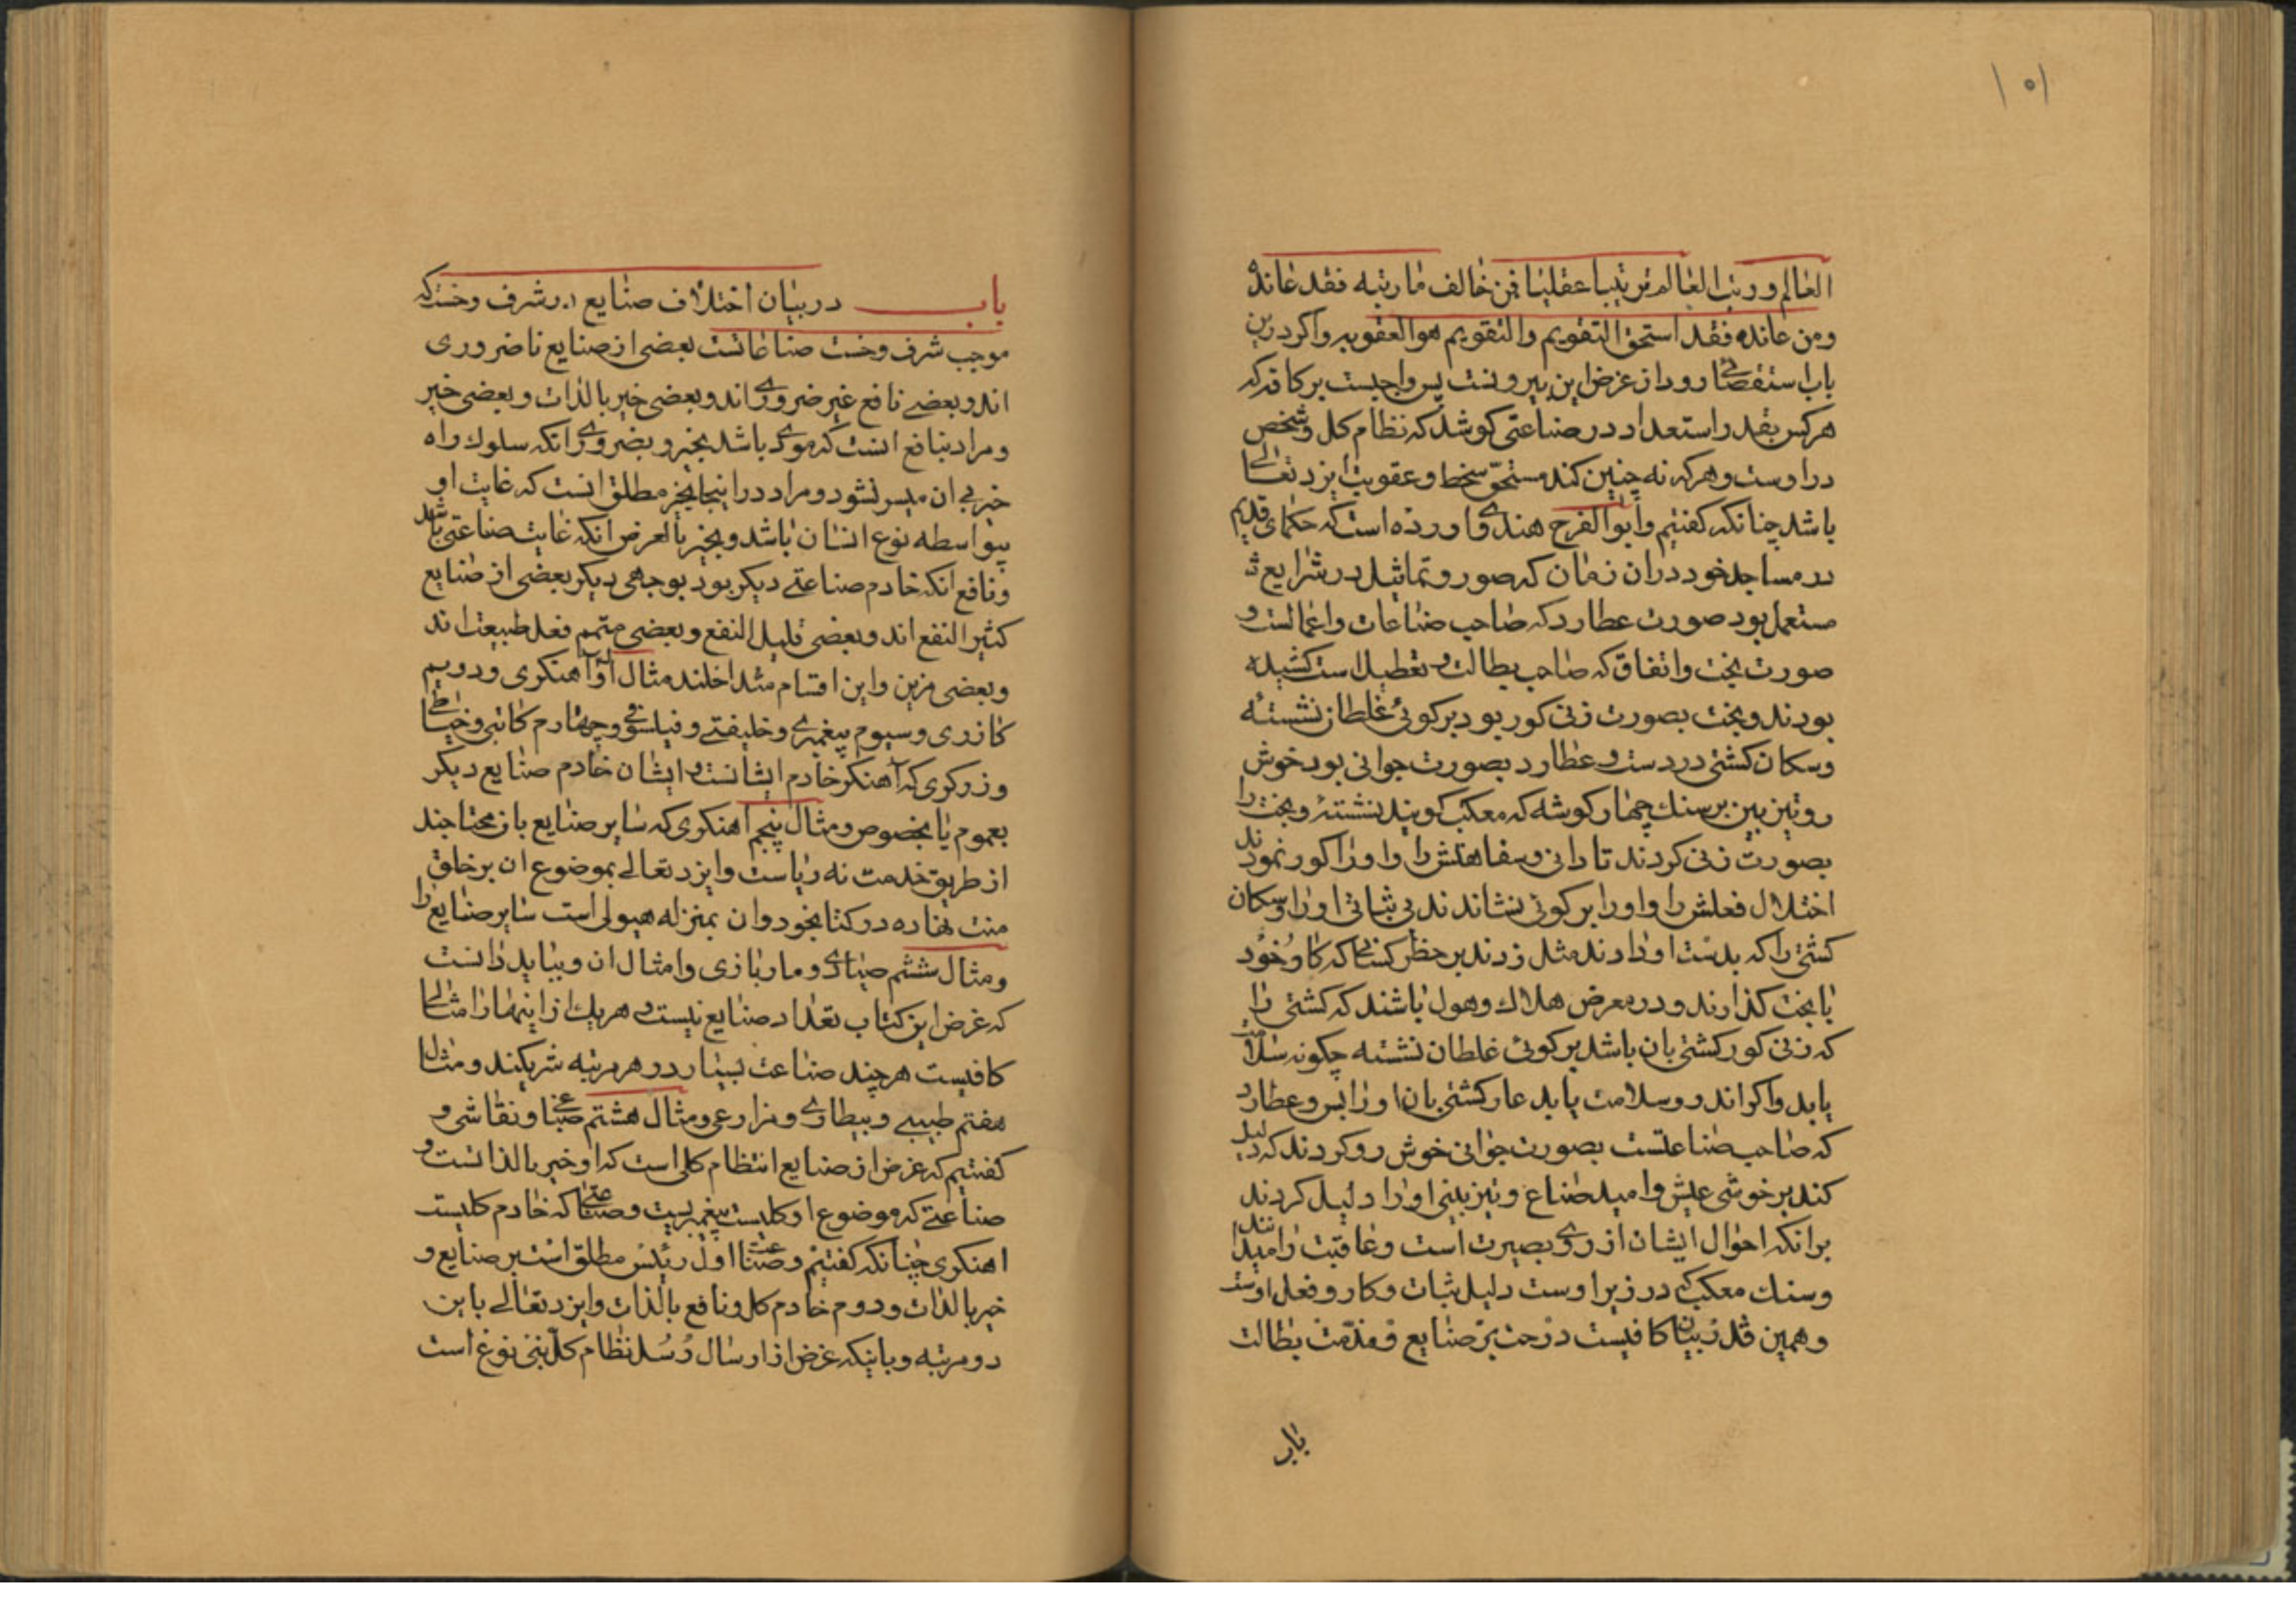 ۱۵۱
العالم و رتب العالم ترتیبا عقلیا فمن خالف ما رتبه فقد عانده
ومن عانده فقد استحق التقویم والتقویم هو العقوبه واکر درین
باب استقصائی رود از غرض این بیرونست پس واجبست بر کافه که
هرکس بقدر استعداد در صناعتی کوشد که نظام کل و شخص
در اوست و هرکه نه چنین کند مستحق سخط و عقوبت ایزد تعالی
باشد چنانکه کفتیم و ابوالفرج هندو اورده است که حکمای قدیم
در مساجد خود دران زمان که صور و تماثیل در شرایع
مستعمل بود صورت عطارد که صاحب صناعات و اعمالست و
صورت بخت و اتفاق که صاحب بطالت و تعطیل است کشیده
بودند و بخت بصورت زنی کور بود بر کوئی غلطان نشسته
و سکان کشتی در دست و عطارد بصورت جوانی بود خوش
رو تیزبین بر سنك چهار کوشه که معکب کویند نشسته و بخت را
بصورت زنی کردند تا دانی و سفاهتش را و اورا کور نمودند
اختلال فعلش را و اورا بر کوئی نشاندند بی ثباتی اورا و سکان
کشتی را که بدست او دادند مثل زدند بر خطر کسانی که کار خود
با بخت کذارند و در معرض هلاك و هول باشند که کشتی را
که زنی کور کشتی بان باشد بر کوئی غلطان نشسته چکونه سلامت
یابد و اکر اندر و سلامت یابد عار کشتی بان اورا بس و عطارد
که صاحب صناعتست بصورت جوانی خوش رو کردند که دلیل
کند بر خوشی عیش و امید صناع و تیزبینی اورا دلیل کردند
برانکه احوال ایشان از روی بصیرت است و عاقبت را میدانند
و سنك معکب که در زیر اوست دلیل ثبات و کار و فعل اوست
و همین قدر بیان کافیست در حث بر صنایع و مذمت بطالت
باب
باب در بیان اختلاف صنایع در شرف و خست که
موجب شرف و خست صناعاتست بعضی از صنایع نا ضروری
اند و بعضی نافع غیر ضروری اند و بعضی خیر بالذات و بعضی خیر
و مراد بنافع انست که مودی باشد بخیر و بضروری انکه سلوك راه
خیر بی ان میسر نشود و مراد در اینجا بخیر مطلق انست که غایت او
بیواسطه نوع انسان باشد و بخیر بالعرض انکه غایت صناعتی باشد
و نافع انکه خادم صناعتی دیکر بود بوجهی دیکر بعضی از صنایع
کثیر النفع اند و بعضی قلیل النفع و بعضی متمم فعل طبیعت اند
و بعضی مزین و این اقسام متداخلند مثال اول آهنکری و دویم
کازری و سیوم پیغمبری و خلیفتی و فیلسوفی و چهارم کاتبی و خیاطی
و زرکری که آهنکر خادم ایشانست و ایشان خادم صنایع دیکر
بعموم یا بخصوص و مثال پنجم اهنکری که سایر صنایع بان محتاجند
از طریق خدمت نه ریاست و ایزد تعالی بموضوع ان بر خلق
منت نهاده در کتاب خود و ان بمنزله هیولی است سایر صنایع را
و مثال ششم صیادی و ماربازی و امثال ان و بباید دانست
که غرض این کتاب تعداد صنایع نیست و هر یك از اینها را مثالی
کافیست هرچند صناعت بسیار در هر مرتبه شریکند و مثال
هفتم طبیبی و بیطاری و مزارعی و مثال هشتم صباغی و نقاشی و
کفتیم که غرض از صنایع انتظام کلی است که او خیر بالذاتست و
صناعتی که موضوع او کلیست پیغمبریست و صناعتی که خادم کلیست
اهنکری چنانکه کفتیم و صناعت اول رئیس مطلق است بر صنایع و
خیر بالذات و دوم خادم کل و نافع بالذات و ایزد تعالی باین
دو مرتبه و بانیکه غرض از ارسال رسل نظام کل بنی نوع است